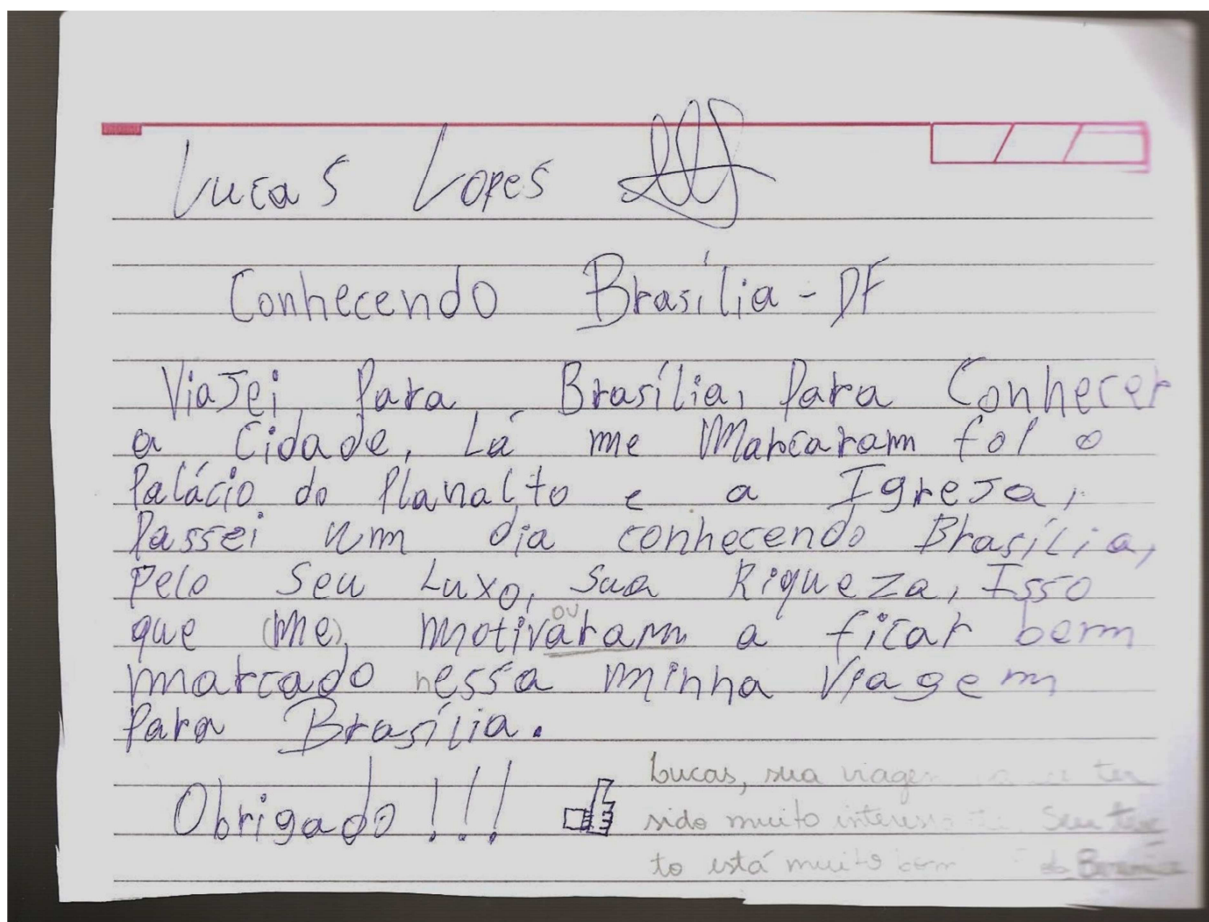 Lucas Lopes
Conhecendo Brasília - DF
Viajei, para, Brasília, para Conhecer
a Cidade, Lá me Marcaram foi o
Palácio do Planalto e a Igreja,
Passei um dia conhecendo Brasília,
pelo Seu Luxo, Sua Riqueza, Isso
ou
que (me) motivaram a ficar bem
marcado nessa minha Viagem
Para Brasília.
Obrigado!!!
Lucas, sua viagem ter
sido muito Seu tex
to está muito bom